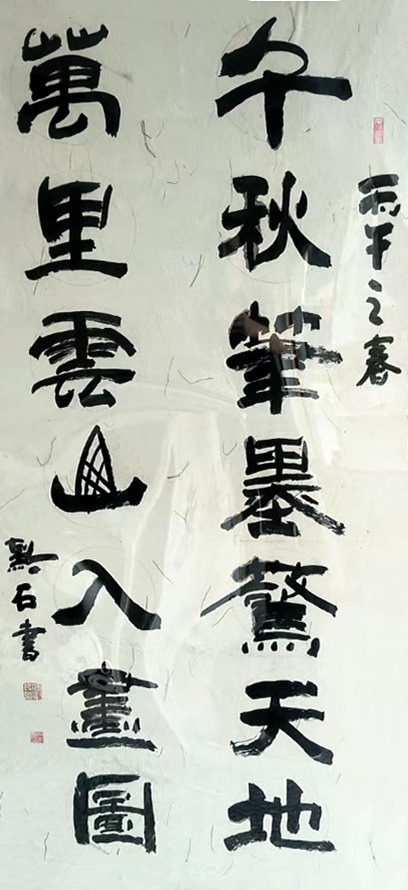 丙午之春
千秋筆墨驚天地
萬里雲山入畫圖
石書